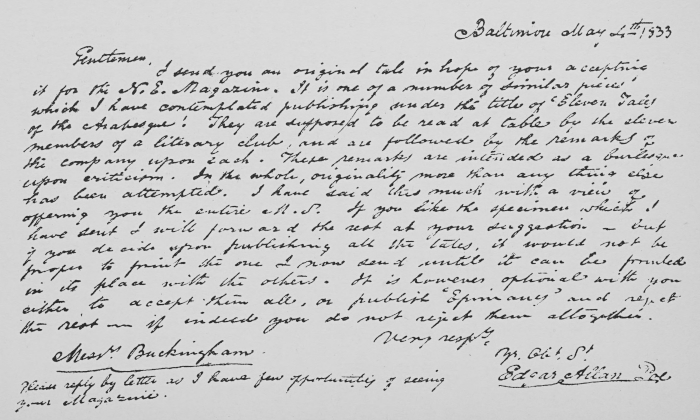 Baltimore May 4th, 1833
Gentlemen,
I send you an original tale in hope of your accepting
it for the N. E. Magazine. It is one of a number of similar pieces
which I have contemplated publishing under the title of 'Eleven Tales
of the Arabesque'. They are supposed to be read at table by the eleven
members of a literary club, and are followed by the remarks of
the company upon each. These remarks are intended as a burlesque
upon criticism. In the whole, originality more than any thing else
has been attempted. I have said this much with a view of
offering you the entire M.S. If you like the specimen which I
have sent I will forward the rest at your suggestion — but
if you decide upon publishing all the tales, it would not be
proper to print the one I now send until it can be printed
in its place with the others. It is however optional with you
either to accept them all, or publish 'Epimanes' and reject
the rest — if indeed you do not reject them altogether.
Very resply,
Yr. Obt. St.
Messrs Buckingham.
Edgar Allan Poe
Please reply by letter as I have few opportunities of seeing
your Magazine.